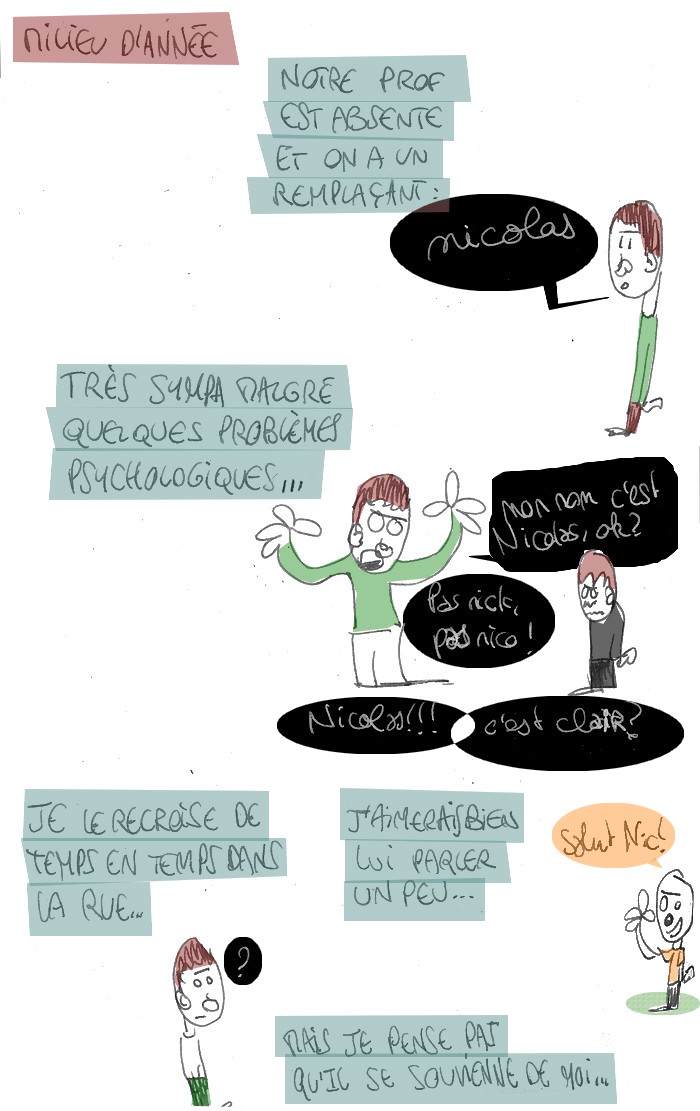 MILIEU D'ANNÉE
NOTRE PROF
EST ABSENTE
ET ON A UN
REMPLAÇANT:
nicolas
TRÈS SYMPA MALGRE
QUELQUES PROBLÈMES
PSYCHOLOGIQUES...
mon nom c'est
Nicolas, ok?
Pas nick,
pas nico!
Nicolas!!!
c'est clair?
JE LE RECROISE DE
TEMPS EN TEMPS DANS
LA RUE...
J'AIMERAIS BIEN
LUI PARLER
UN PEU...
Salut Nic!
?
MAIS JE PENSE PAS
QU'IL SE SOUVIENNE DE MOI...